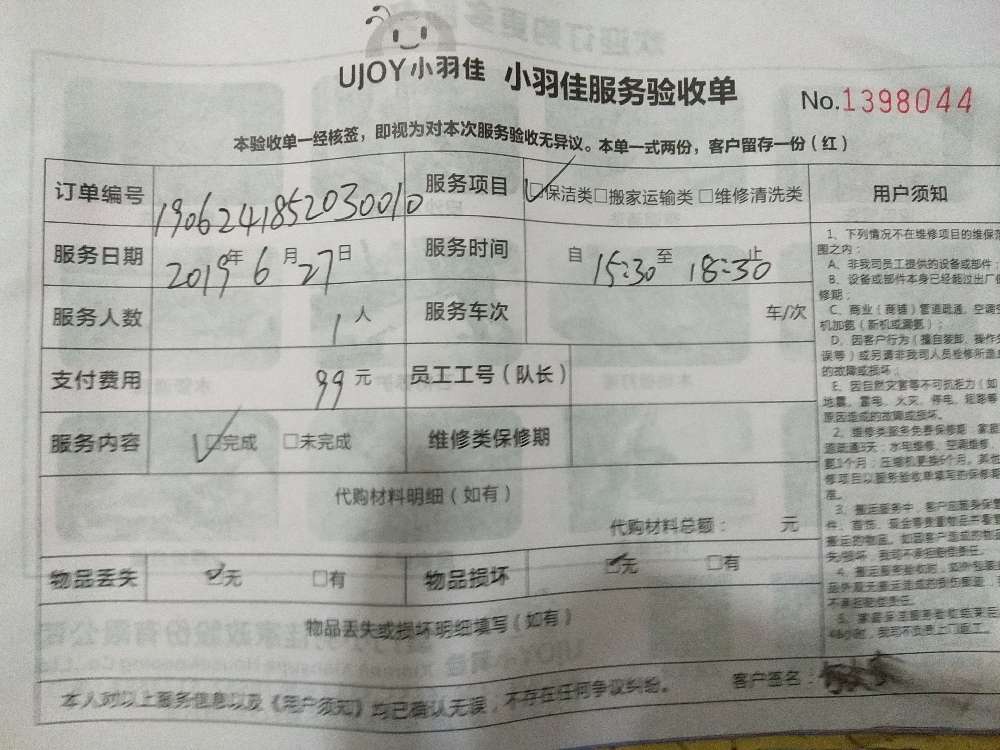 UJOY小羽佳 小羽佳服务验收单 No.1398044
本验收单一经核签，即视为对本次服务验收无异议。本单一式两份，客户留存一份（红）
订单编号 1906241852030010 服务项目 ☑保洁类□搬家运输类□维修清洗类
服务日期 2019年6月27日 服务时间 自15:30至18:30止
服务人数 1人 服务车次 车/次
支付费用 99元 员工工号（队长）
服务内容 ☑完成 □未完成 维修类保修期
代购材料明细（如有）
代购材料总额： 元
物品丢失 ☑无 □有 物品损坏 ☑无 □有
物品丢失或损坏明细填写（如有）
本人对以上服务信息以及《用户须知》均已确认无误，不存在任何争议纠纷。 客户签名：
用户须知
1、下列情况不在维修项目的维保范
围之内：
A、非我司员工提供的设备或部件；
B、设备或部件本身已经超过出厂保
修期；
C、商业（商铺）管道疏通，空调空
机加氨（新机或漏氨）；
D、因客户行为（擅自装卸、操作失
误等）或另请非我司人员检修所造成
的故障或损坏；
E、因自然灾害等不可抗拒力（如
地震、雷电、火灾、停电、短路等
原因造成的故障或损坏。
2、维修类服务免费保修期：家庭
道疏通3天；水电维修、空调维修、
氨3个月；压缩机更换6个月，其他
修项目以服务验收单填写的保修期
准。
3、搬运服务中，客户应随身保管
件、首饰、现金等贵重物品并看管
搬运的物品，如因客户造成的物品
失/损坏，我司不承担赔偿责任。
4、搬运服务验收时，如外包装
品外观无搬运造成的损伤痕迹，
不承担赔偿责任。
5、家庭保洁服务验收结束后
48小时，我司不负责上门返工。